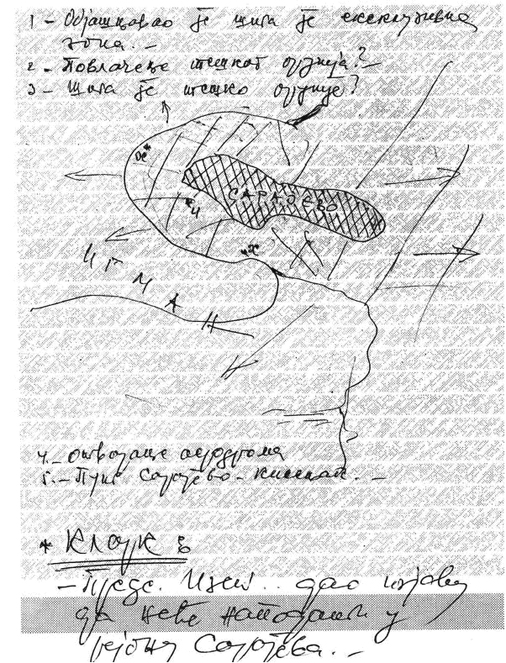 1 - Објашњавао је шта је ексклузивна
зона. -
2 - Повлачење тешког оружја? -
3 - Шта је тешко оружје?
САРАЈЕВО
ИГМАН
4. - отварање аеродрома
5. - Пут Сарајево - Кисељак. -
* КЛАРК:
- Предс. Изет.. дао изјаву
да неће нападати у
рејону Сарајева. -